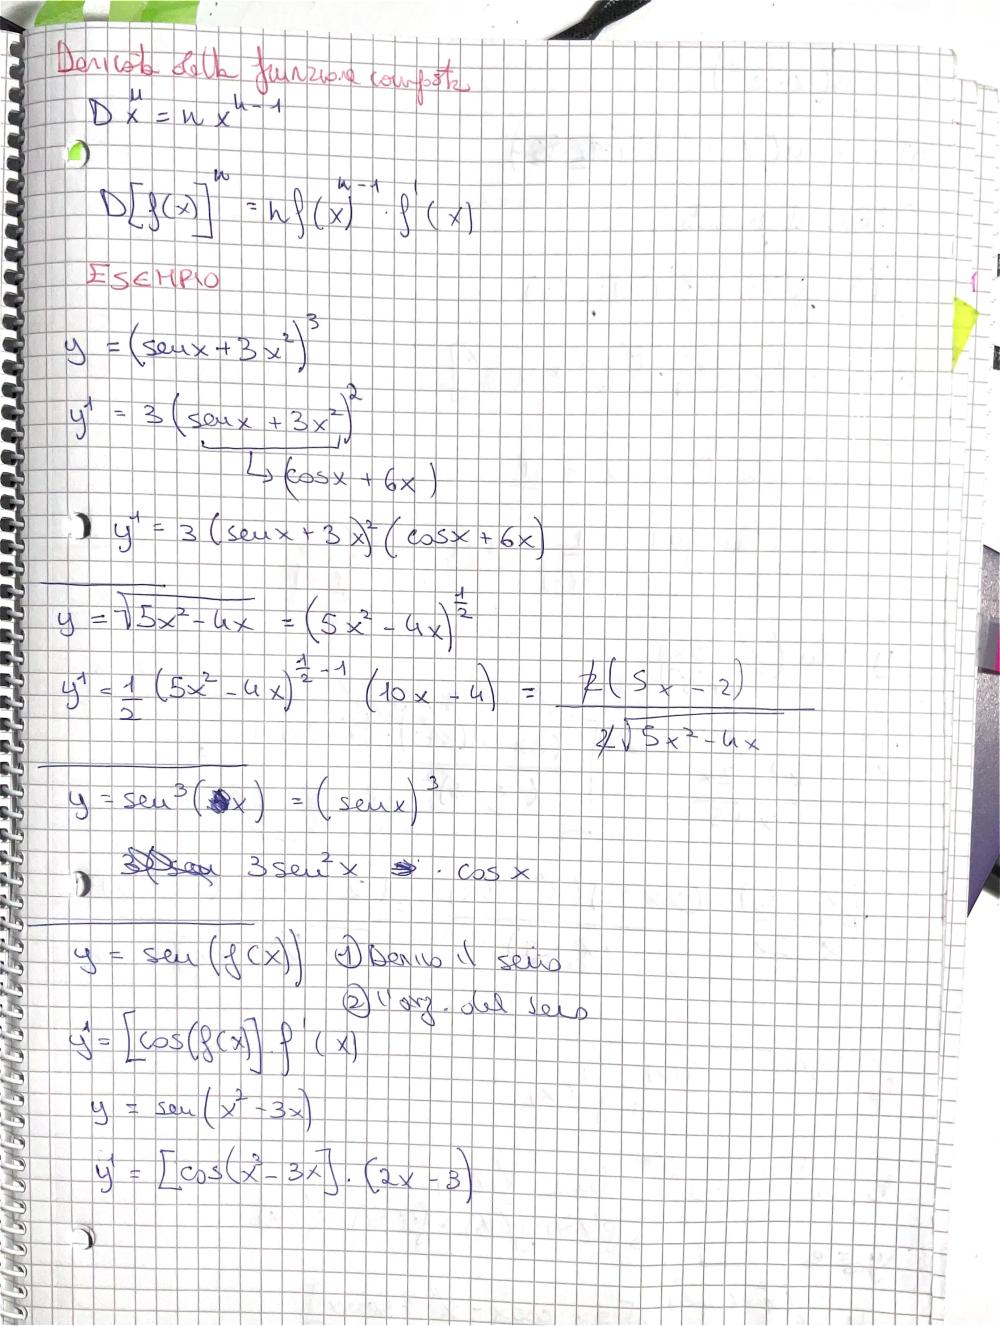 Derivata della funzione composta
D xⁿ = n xⁿ⁻¹
D[f(x)]ⁿ = n f(x)ⁿ⁻¹ · f'(x)
ESEMPIO
y = (senx + 3x²)³
y' = 3 (senx + 3x²)²
↳ (cosx + 6x)
y' = 3 (senx + 3x)² (cosx + 6x)
y = √(5x² - 4x) = (5x² - 4x)^(1/2)
y' = 1/2 (5x² - 4x)^(1/2 - 1) (10x - 4) = 2(5x - 2) / 2√(5x² - 4x)
y = sen³(x) = (senx)³
3sen²x · cosx
y = sen(f(x)) ① Derivo il seno
② l'arg. del seno
y' = [cos(f(x)]·f'(x)
y = sen(x² - 3x)
y' = [cos(x² - 3x]·(2x - 3)